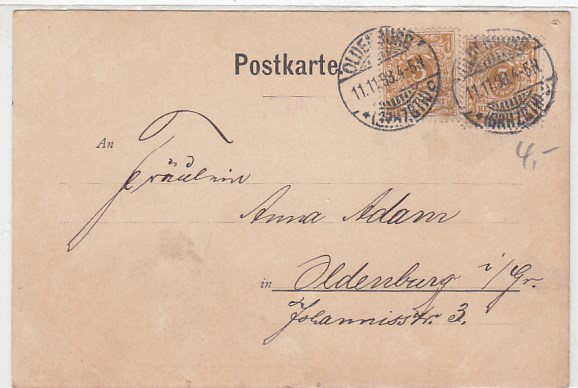 Postkarte
OLDENBURG
11.11.98.4-5N.
* (GRHZGTM)
OLDENBURG
11.11.98.4-5N.
* (GRHZGTM)
3
4,-
An
Fräulein
Anna Adam
in Oldenburg i/Gr.
Johannisstr. 3.